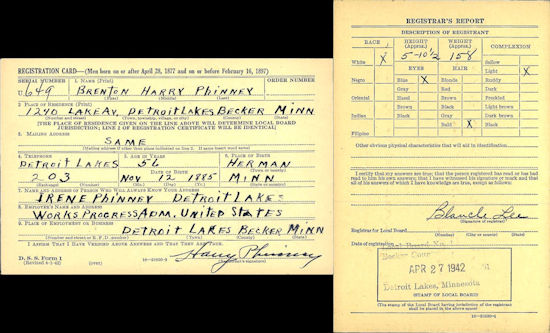 REGISTRATION CARD—(Men born on or after April 28, 1877 and on or before February 16, 1897)
SERIAL NUMBER 1. NAME (Print) ORDER NUMBER
U 649 BRENTON HARRY PHINNEY
(First) (Middle) (Last)
2. PLACE OF RESIDENCE (Print)
1240 LAKE AV, DETROIT LAKES BECKER MINN
(Number and street) (Town, township, village, or city) (County) (State)
[THE PLACE OF RESIDENCE GIVEN ON THE LINE ABOVE WILL DETERMINE LOCAL BOARD
JURISDICTION; LINE 2 OF REGISTRATION CERTIFICATE WILL BE IDENTICAL]
3. MAILING ADDRESS
SAME
(Mailing address if other than place indicated on line 2. If same insert word same)
4. TELEPHONE 5. AGE IN YEARS 6. PLACE OF BIRTH
DETROIT LAKES 56 HERMAN
DATE OF BIRTH (Town or county)
203 NOV 12 1885 MINN
(Exchange) (Number) (Mo.) (Day) (Yr.) (State or country)
7. NAME AND ADDRESS OF PERSON WHO WILL ALWAYS KNOW YOUR ADDRESS
IRENE PHINNEY DETROIT LAKES
8. EMPLOYER'S NAME AND ADDRESS
WORKS PROGRESS ADM. UNITED STATES
9. PLACE OF EMPLOYMENT OR BUSINESS
DETROIT LAKES BECKER MINN
(Number and street or R. F. D. number) (Town) (County) (State)
I AFFIRM THAT I HAVE VERIFIED ABOVE ANSWERS AND THAT THEY ARE TRUE.
D. S. S. Form 1
(Revised 4-1-42) (over) 16—21630-2
Harry Phinney
(Registrant's signature)
REGISTRAR'S REPORT
DESCRIPTION OF REGISTRANT
RACE HEIGHT (Approx.) WEIGHT (Approx.) COMPLEXION
5-10½ 158
White X Sallow
EYES HAIR Light X
Negro Blue X Blonde Ruddy
Gray Red Dark
Oriental Hazel Brown Freckled
Brown Black Light brown
Indian Black Gray Dark brown
Bald X Black
Filipino
Other obvious physical characteristics that will aid in identification
I certify that my answers are true; that the person registered has read or has had
read to him his own answers; that I have witnessed his signature or mark and that
all of his answers of which I have knowledge are true, except as follows:
Blanche Lee
(Signature of registrar)
Registrar for Local Board
(Number) (City or county) (State)
Date of registration
Local Board No. 1
Becker County
APR 27 1942
Detroit Lakes, Minnesota
(STAMP OF LOCAL BOARD)
(The stamp of the Local Board having jurisdiction of the registrant
shall be placed in the above space)
16—21630-1